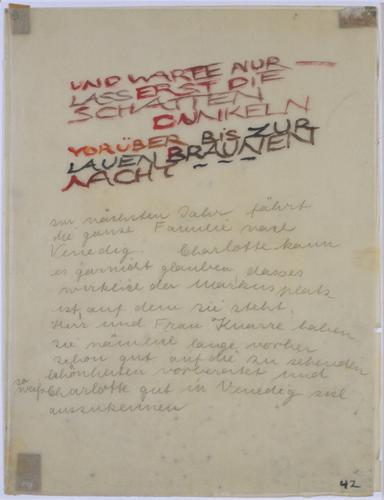 UND WARTE NUR —
LASS ERST DIE
SCHATTEN
DUNKELN
VORÜBER BIS ZUR
LAUEN BRAUNEN
NACHT
im nächsten Jahr fährt
die ganze Familie nach
Venedig. Charlotte kann
es garnicht glauben dasses
wirklich der Markusplatz
ist, auf dem sie steht.
Herr und Frau Knarre haben
sie nämlich lange vorher
schon gut auf die zu sehenden
Schönheiten vorbereitet und
so weiß Charlotte gut in Venedig sich
auszukennen
42